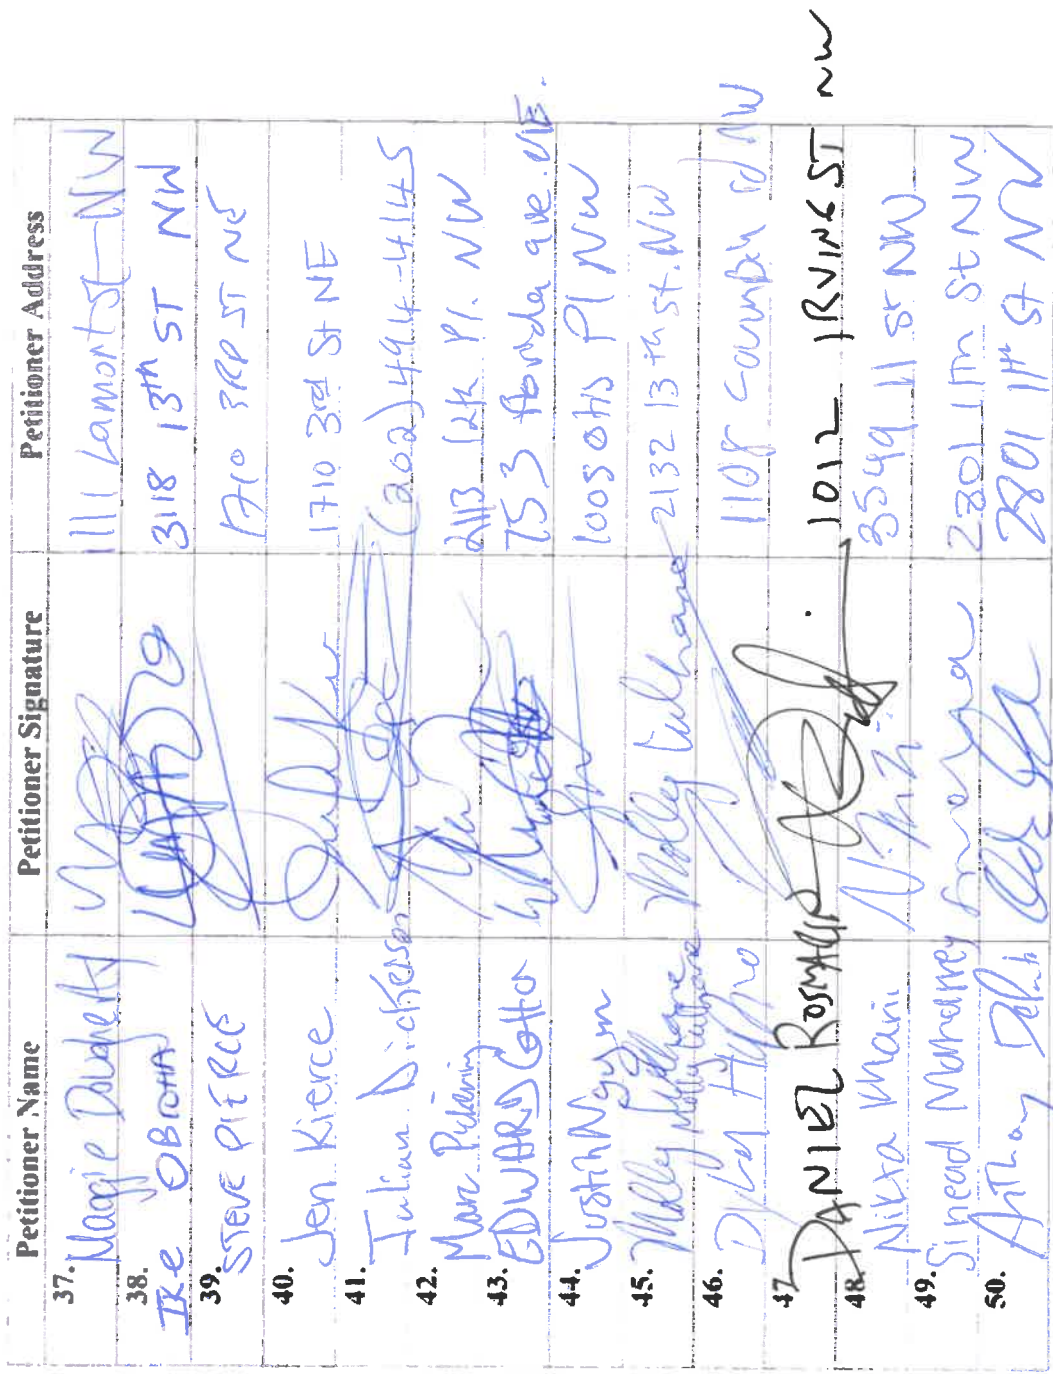 Petitioner Name Petitioner Signature Petitioner Address
37. Maggie Dougherty 111 Lamont St NW
38. IKe OBIOHA 3118 13th ST NW
39. STEVE PIERCE 1710 3RD ST NE
40. Jen Kierce 1710 3rd St NE
41. Julian Dickerson (202) 494-4145
42. Marc Pickering 2113 12th Pl. NW
43. EDWARD Cotto 753 florida ave. NE.
44. Justin Ngym 1005 Otis Pl NW
45. Molly Culhane Molly Culhane Molly Culhane 2132 13th st. NW
46. Dylan 1108 rd NW
47. DANIEL ROSMARIN 1012 IRVING ST NW
48. Nikta Khani 3549 11 St NW
49. Sinead 2801 11th St NW
50. Anthony 2801 11th St NW